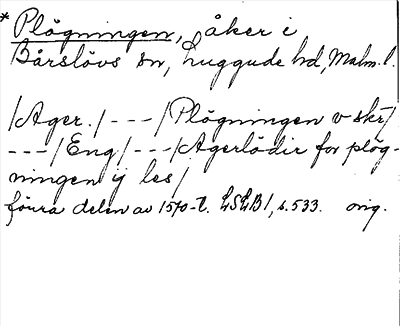 * Plögningen, åker i
Bårslövs sn, Luggude hd, Malm. l.
/Ager./ --- /Plögningen v skr/
--- /Eng/ --- /Agerlödir for plög-
ningen ij les/
förra delen av 1570-t. LSLB1, s. 533. orig.